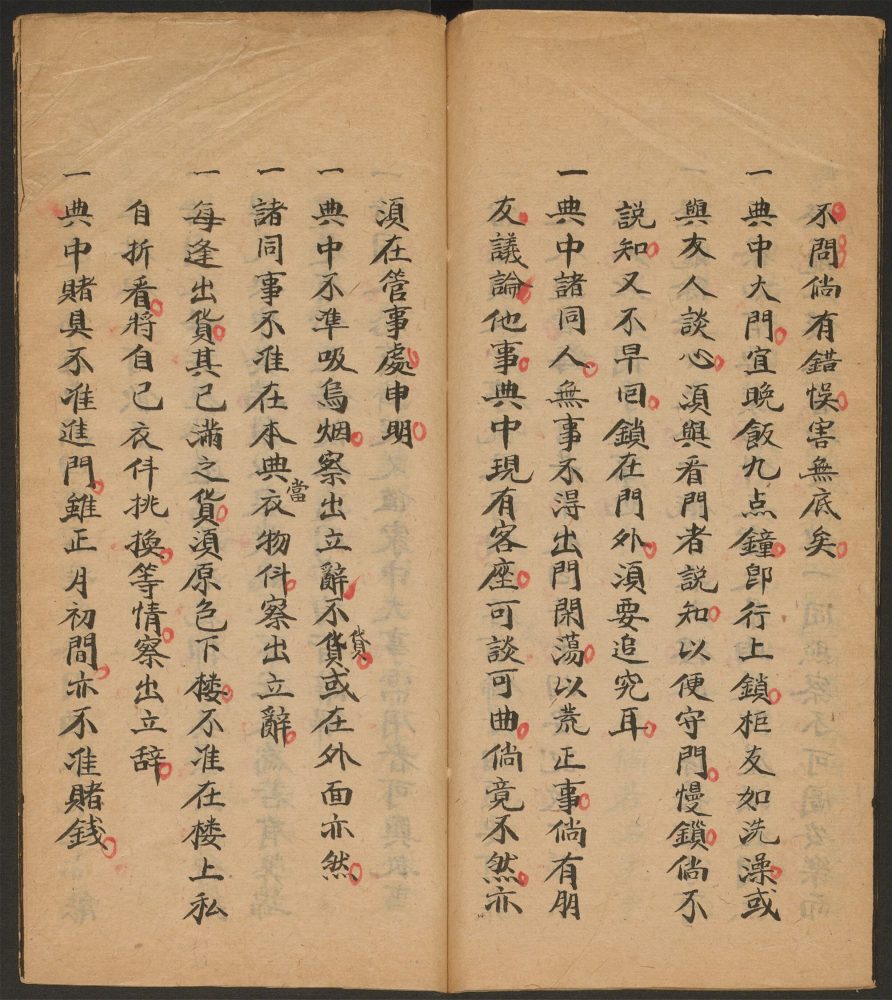 不問倘有錯悮害無底矣
一典中大門宜晚飯九点鐘卽行上鎖柜友如洗澡或
與友人談心湏與看門者説知以便守門慢鎖倘不
説知又不早囘鎖在門外湏要追究耳
一典中諸同人無事不淂出門閑蕩以荒正事倘有朋
友議論他事典中現有客座可談可曲倘竟不然亦
湏在管事處申明
一典中不準吸烏烟察出立辭不貨貸或在外面亦然
一諸同事不准在本典當衣物件察出立辭
一每逢出貨其已滿之貨湏原色下楼不准在楼上私
自折看將自己衣件挑換等情察出立辞
一典中賭具不准進門雖正月初間亦不准賭錢